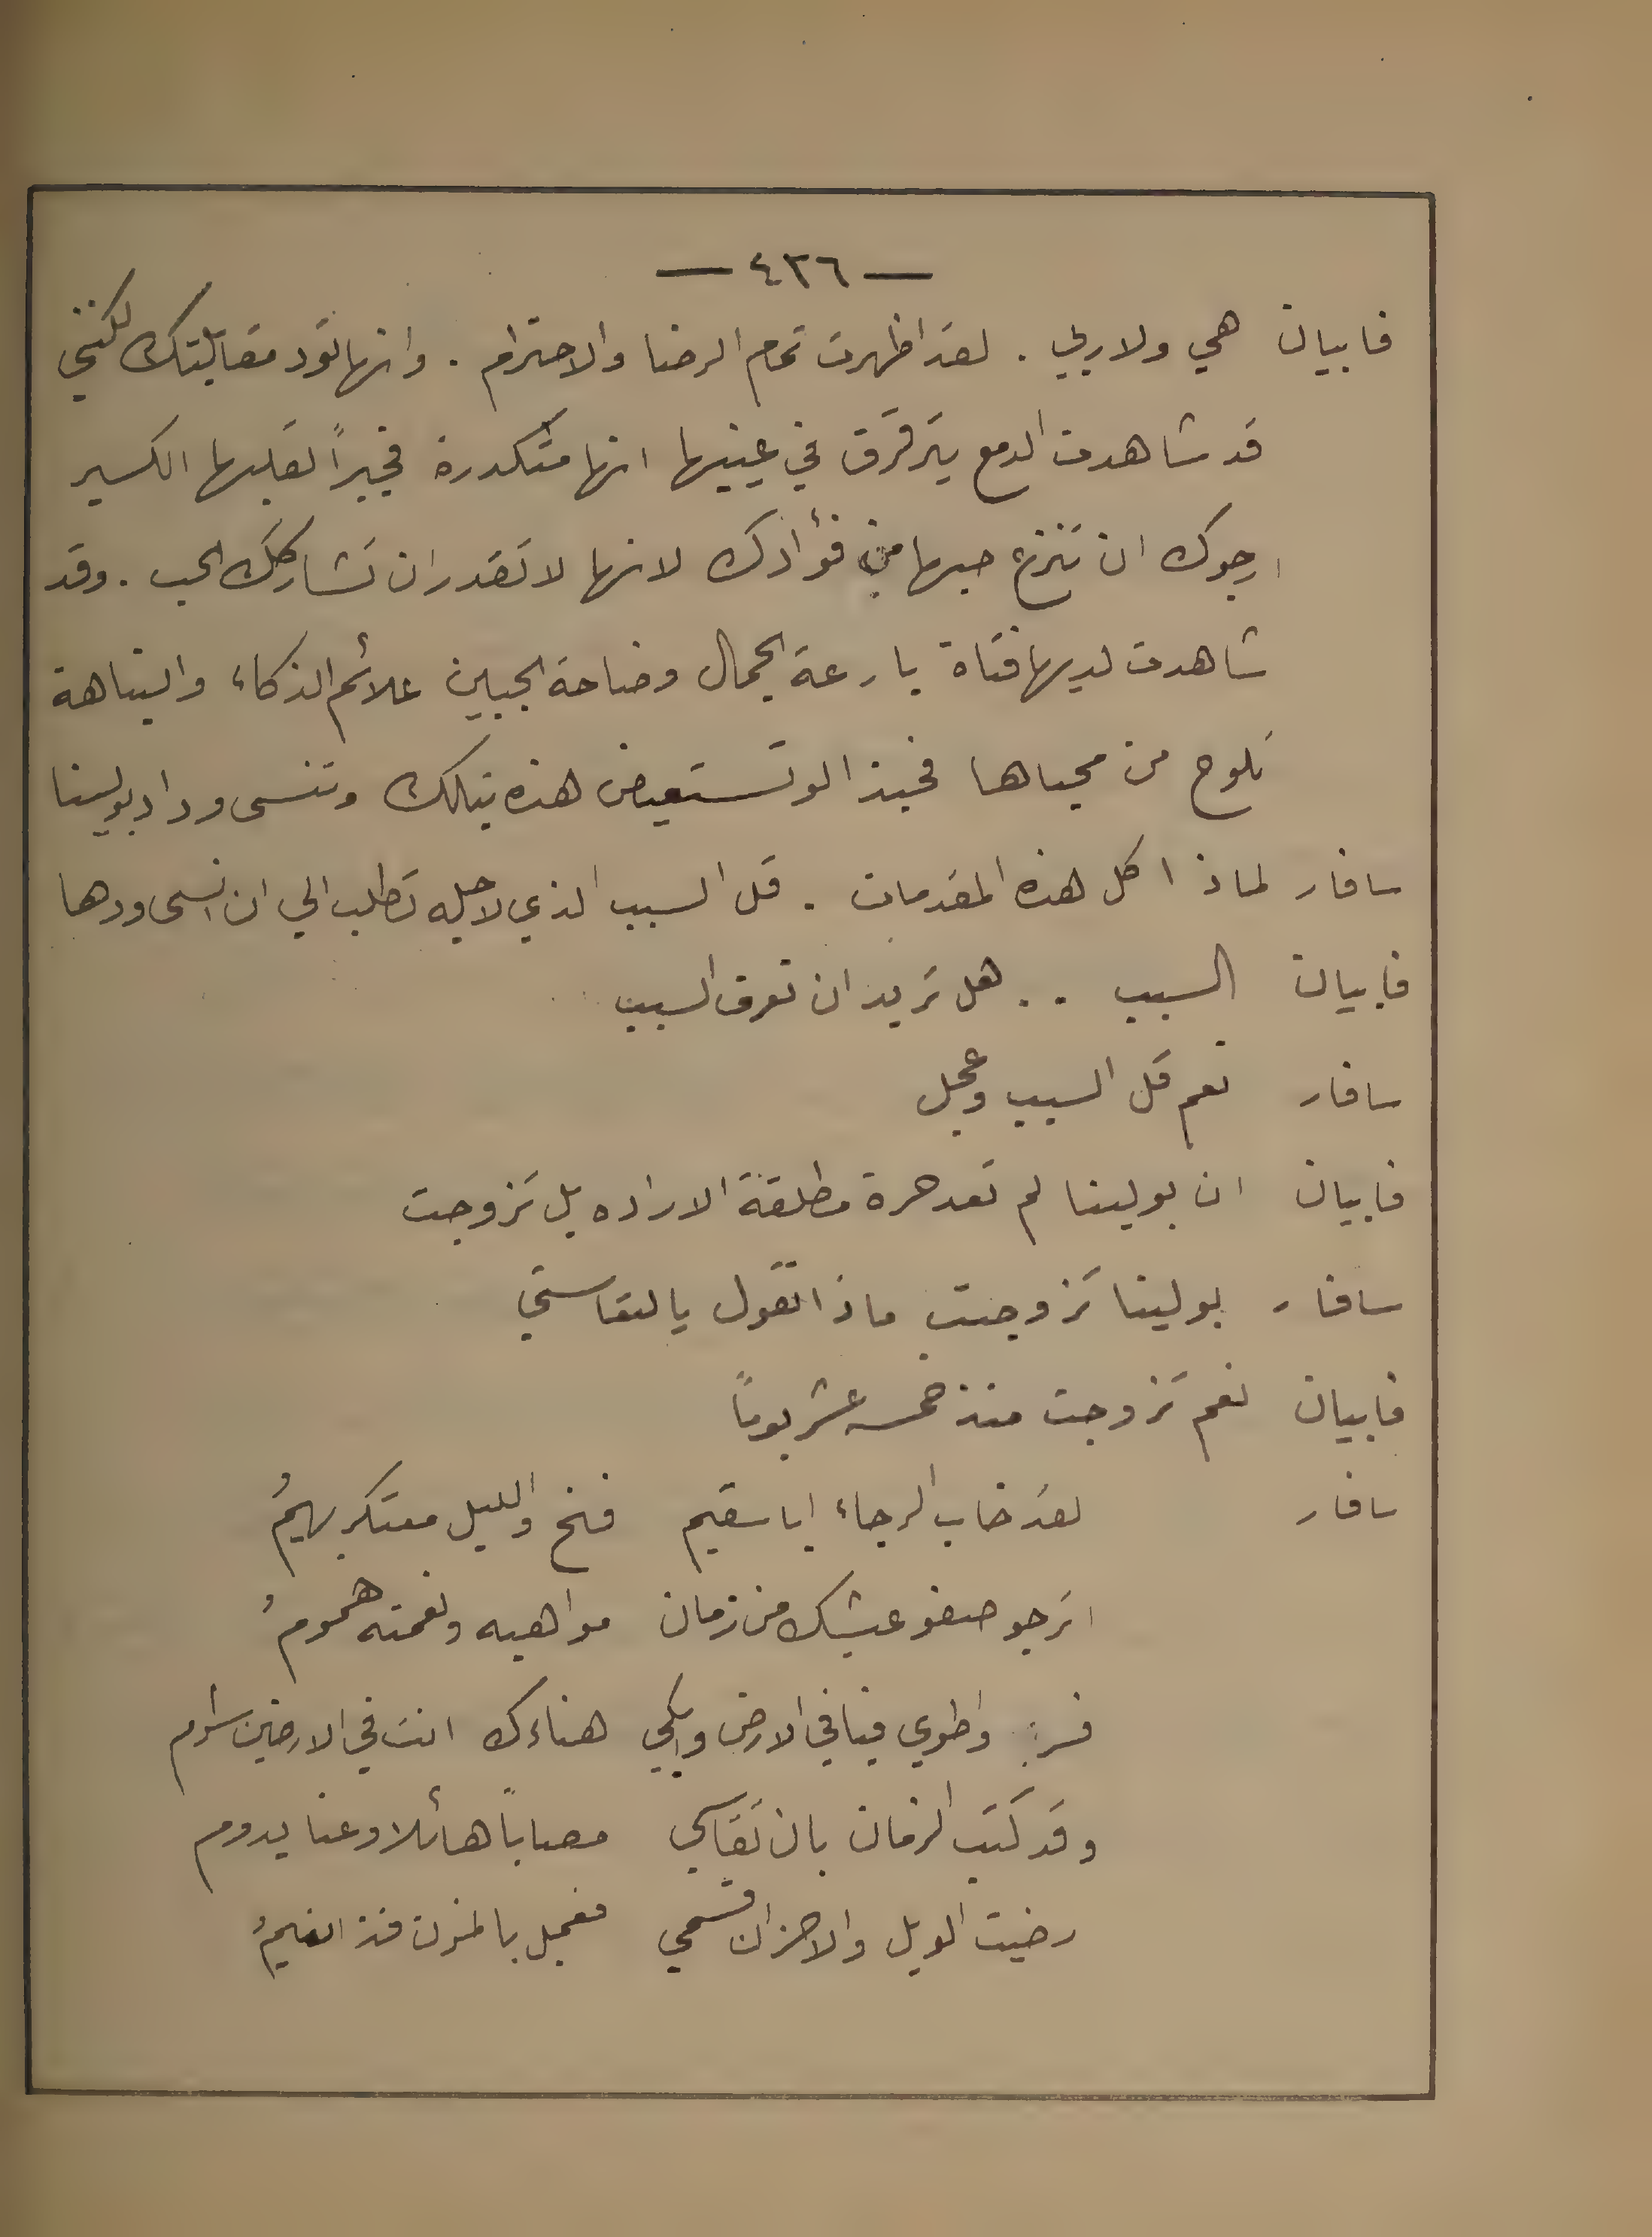 — ٤٢٦ —
فابيان هي ولا ريب . لقد اظهرت تمام الرضا والاحترام . وانها تود مقابلتك لكنني
قد شاهدت الدمع يترقرق في عينيها انها متكدرة فجبراً لقلبها الكسير
ارجوك ان تنزع حبها من فؤادك لانها لا تقدر ان تشاركك الحب . وقد
شاهدت لديها فتاة بارعة الجمال وضاحة الجبين علائم الذكاء والنباهة
تلوح من محياها فحبذا لو تستعيض هذه بتلك وتنسى وداد بولينا
سافار لماذا كل هذه المقدمات . قل السبب الذي لاجله تطلب الي ان انسى ودها
فابيان السبب .. هل تريد ان تعرف السبب
سافار نعم قل السبب وعجل
فابيان ان بولينا لم تعد حرة مطلقة الاراده بل تزوجت
سافار بولينا تزوجت ماذا تقول يا لتعاستي
فابيان نعم تزوجت منذ خمسه عشر يوماً
سافار لقد خاب الرجاء ايا سقيم فنح والليل معتكر بهيمُ
اترجو صفو عيشك من زمان مواهبه ونعمته همومُ
فسر واطوي فيافي الارض وابكي هناءك انت في الارضين شوم
وقد كتب الزمان بان تقاسي مصاباً هائلا وعنا يدوم
رضيت الويل والاحزان قسمي فعجل بالمنون